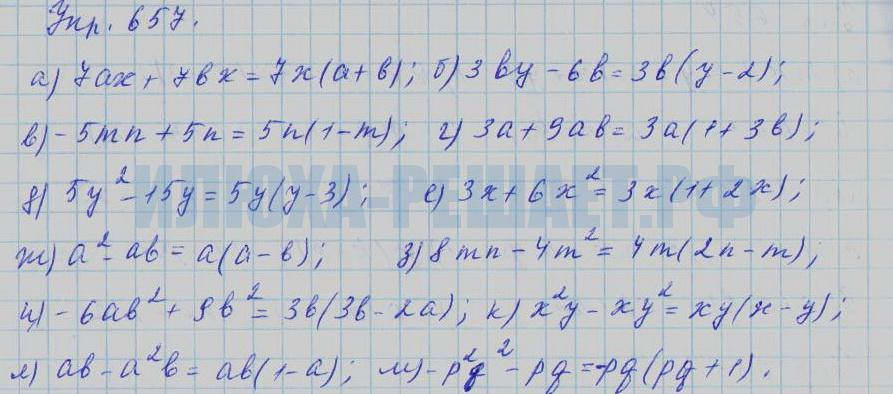 Упр. 657.
а) 7ax + 7bx = 7x(a+b); б) 3by - 6b = 3b(y-2);
в) -5mn + 5n = 5n(1-m); г) 3a + 9ab = 3a(1+3b);
д) 5y² - 15y = 5y(y-3); е) 3x + 6x² = 3x(1+2x);
ИЛЮХА-РЕШАЕТ.РФ
ж) a² - ab = a(a-b); з) 8mn - 4m² = 4m(2n-m);
и) -6ab² + 9b² = 3b(3b-2a); к) x²y - xy² = xy(x-y);
л) ab - a²b = ab(1-a); м) -p²q² - pq = -pq(pq+1).